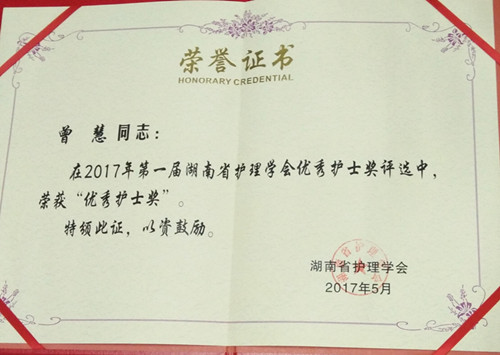 荣誉证书
HONORARY CREDENTIAL
曾慧同志：
在2017年第一届湖南省护理学会优秀护士奖评选中，
荣获“优秀护士奖”。
特颁此证，以资鼓励。
湖南省护理学会
2017年5月